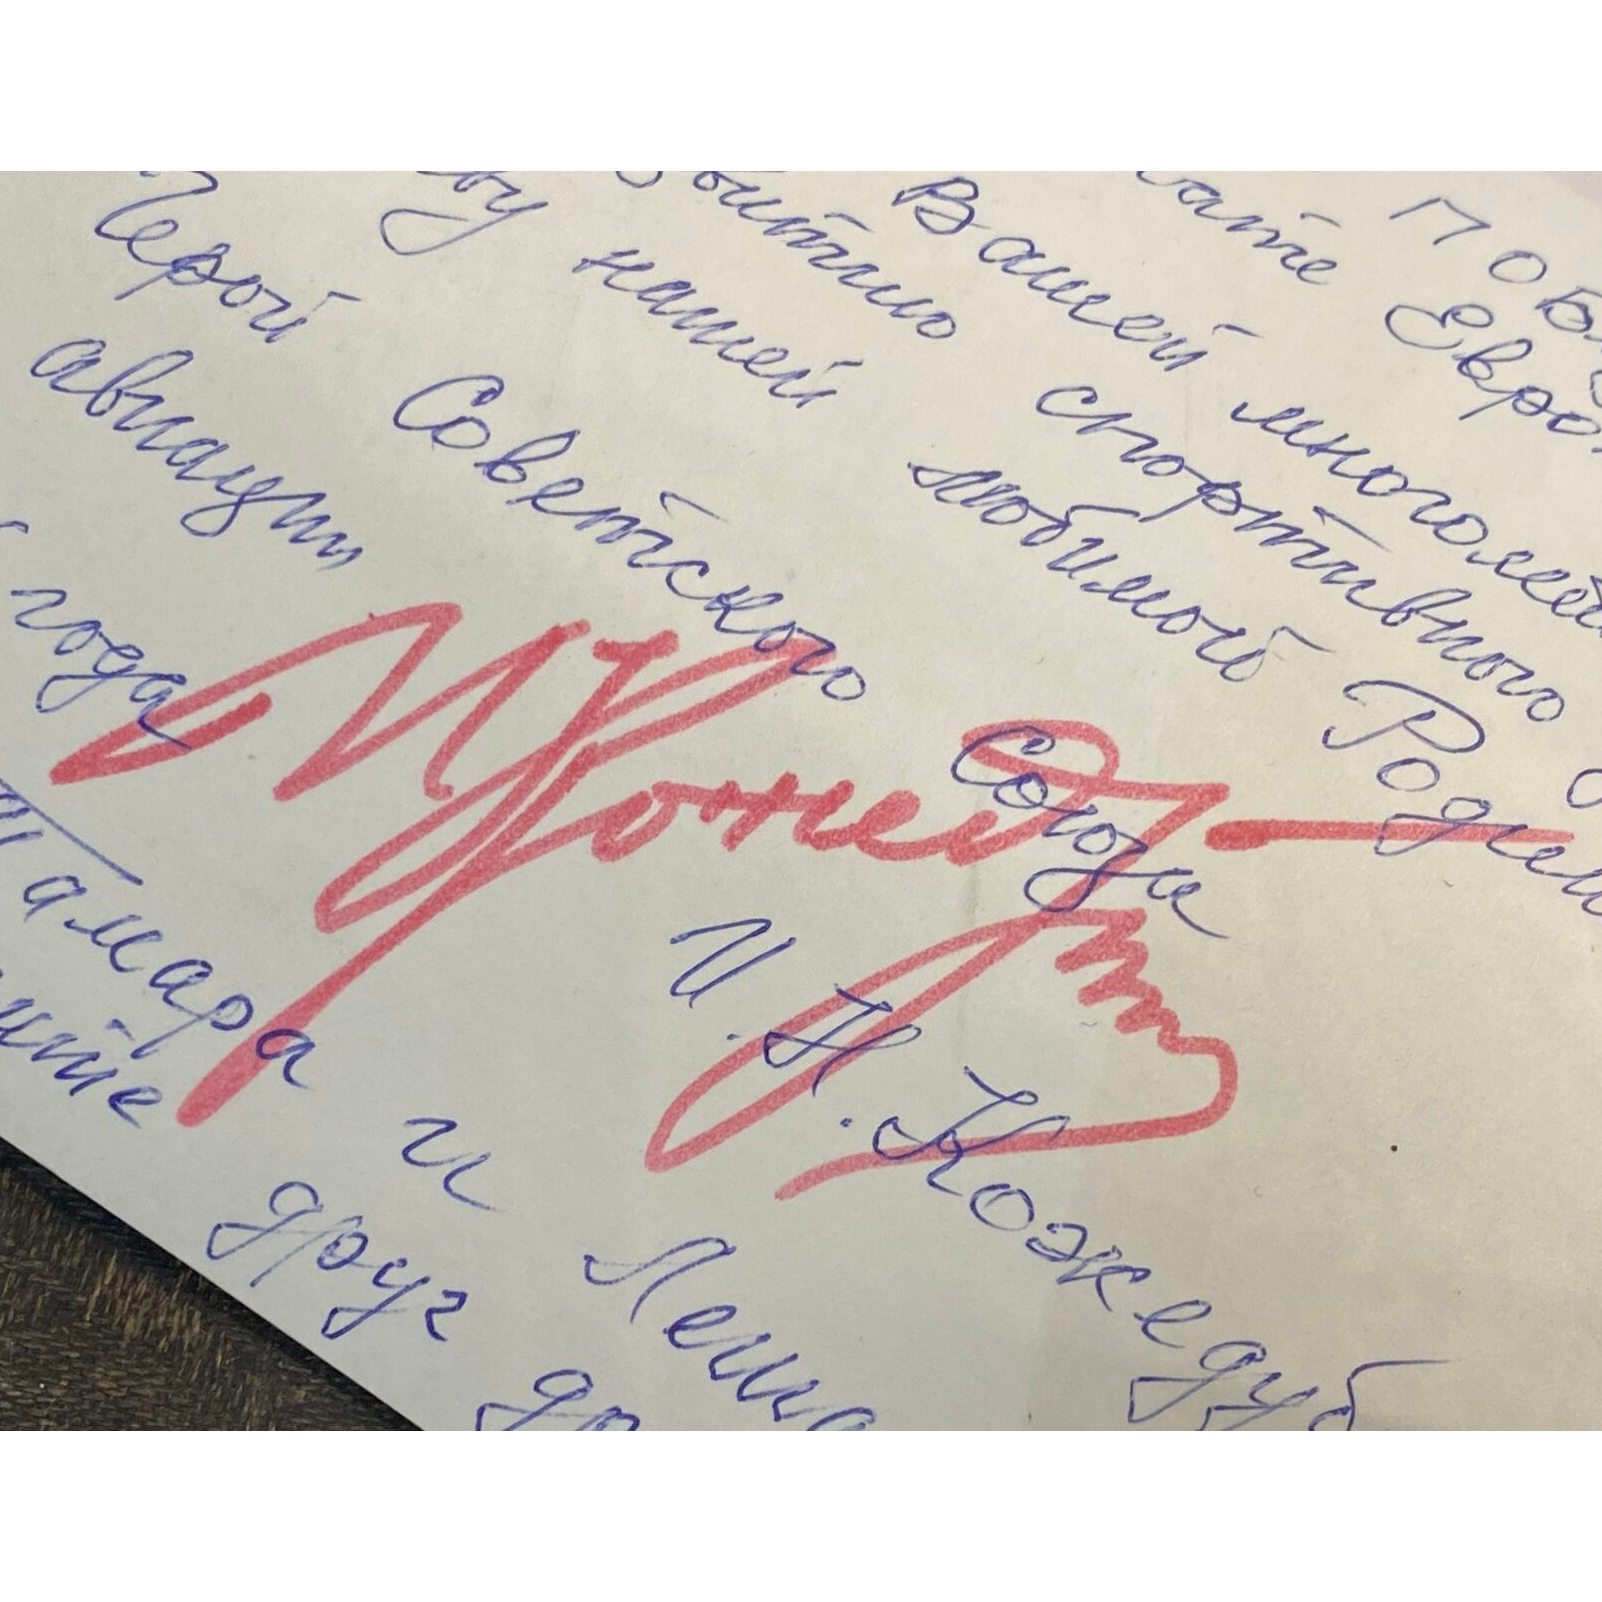 ПОБ
ате Евро
Вашей многолет
витию спортивного
ву нашей любимой Роди
Герой Советского Союза
авиации И.Н.Кожедуб
года
ИКожедуб
Тамара и Леша
ите друг др